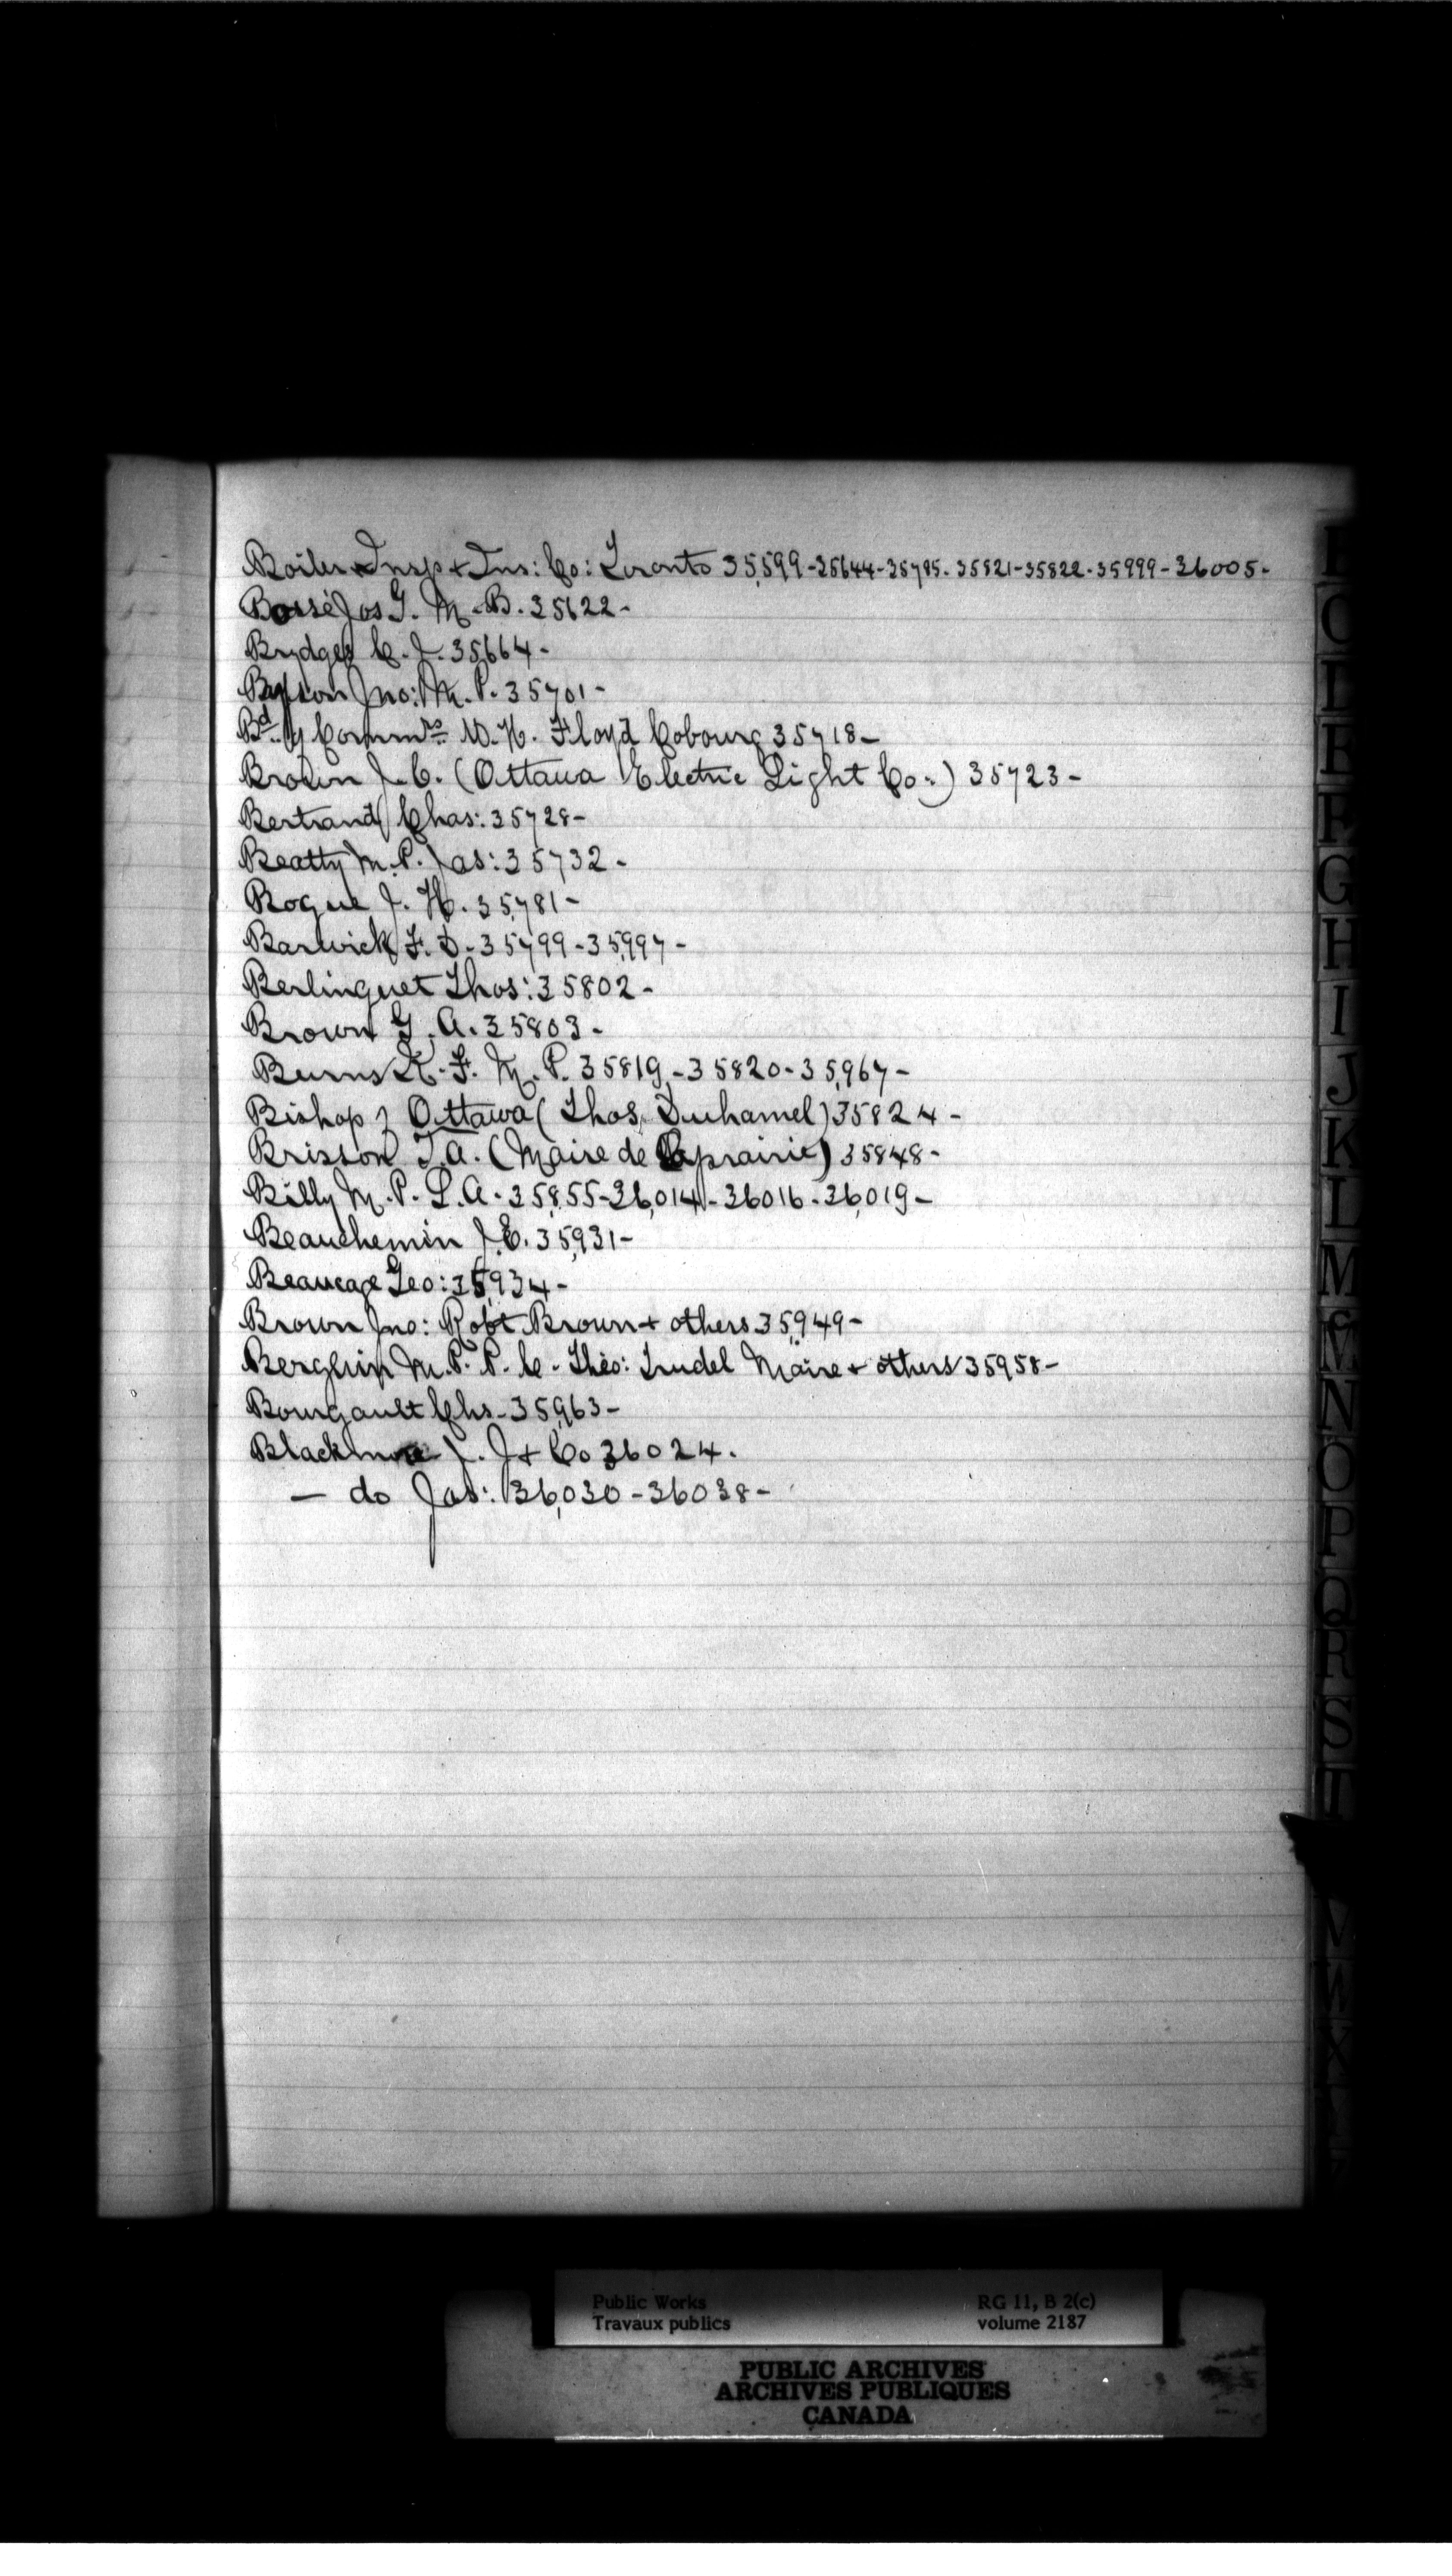 Boiler Insp + Ins: Co: Toronto 35,599-35644-35785-35821-35822-35999-36005-
Bossé Jos G. M. B. 35622-
Brydges C. J. 35664-
Bryson Jno: M. P. 35701-
Bd of Commrs W. H. Floyd Cobourg 35718-
Brown J. C. (Ottawa Electric Light Co:) 35723-
Bertrand Chas: 35728-
Beatty M.P. Jas: 35732-
Bogue J. H. 35,781-
Barwick F. D. 35799-35,997-
Berlinguet Thos: 35802-
Brown G. A. 35803-
Burns K. F. M. P. 35819-35820-35,967-
Bishop of Ottawa (Thos. Duhamel) 35824-
Brisson T.A. (Maire de Laprairie) 35848-
Billy M. P. L. A. 35,855-36,014-36016-36,019-
Beauchemin J. E. 35,931-
Beaucage Geo: 35,934-
Brown Jno: Robt Brown + others 35,949-
Bergevin M. P. P. C. Théo: Trudel Maire + others 35958-
Bourgault Chs. 35,963-
Blackmore J. J + Co 36024.
— do Jas: 36,030-36038-
C
D
E
F
G
H
I
J
K
L
M
Mc
N
O
P
Q
R
S
T
V
W
X
Public Works RG 11, B 2(c)
Travaux publics volume 2187
PUBLIC ARCHIVES
ARCHIVES PUBLIQUES
CANADA